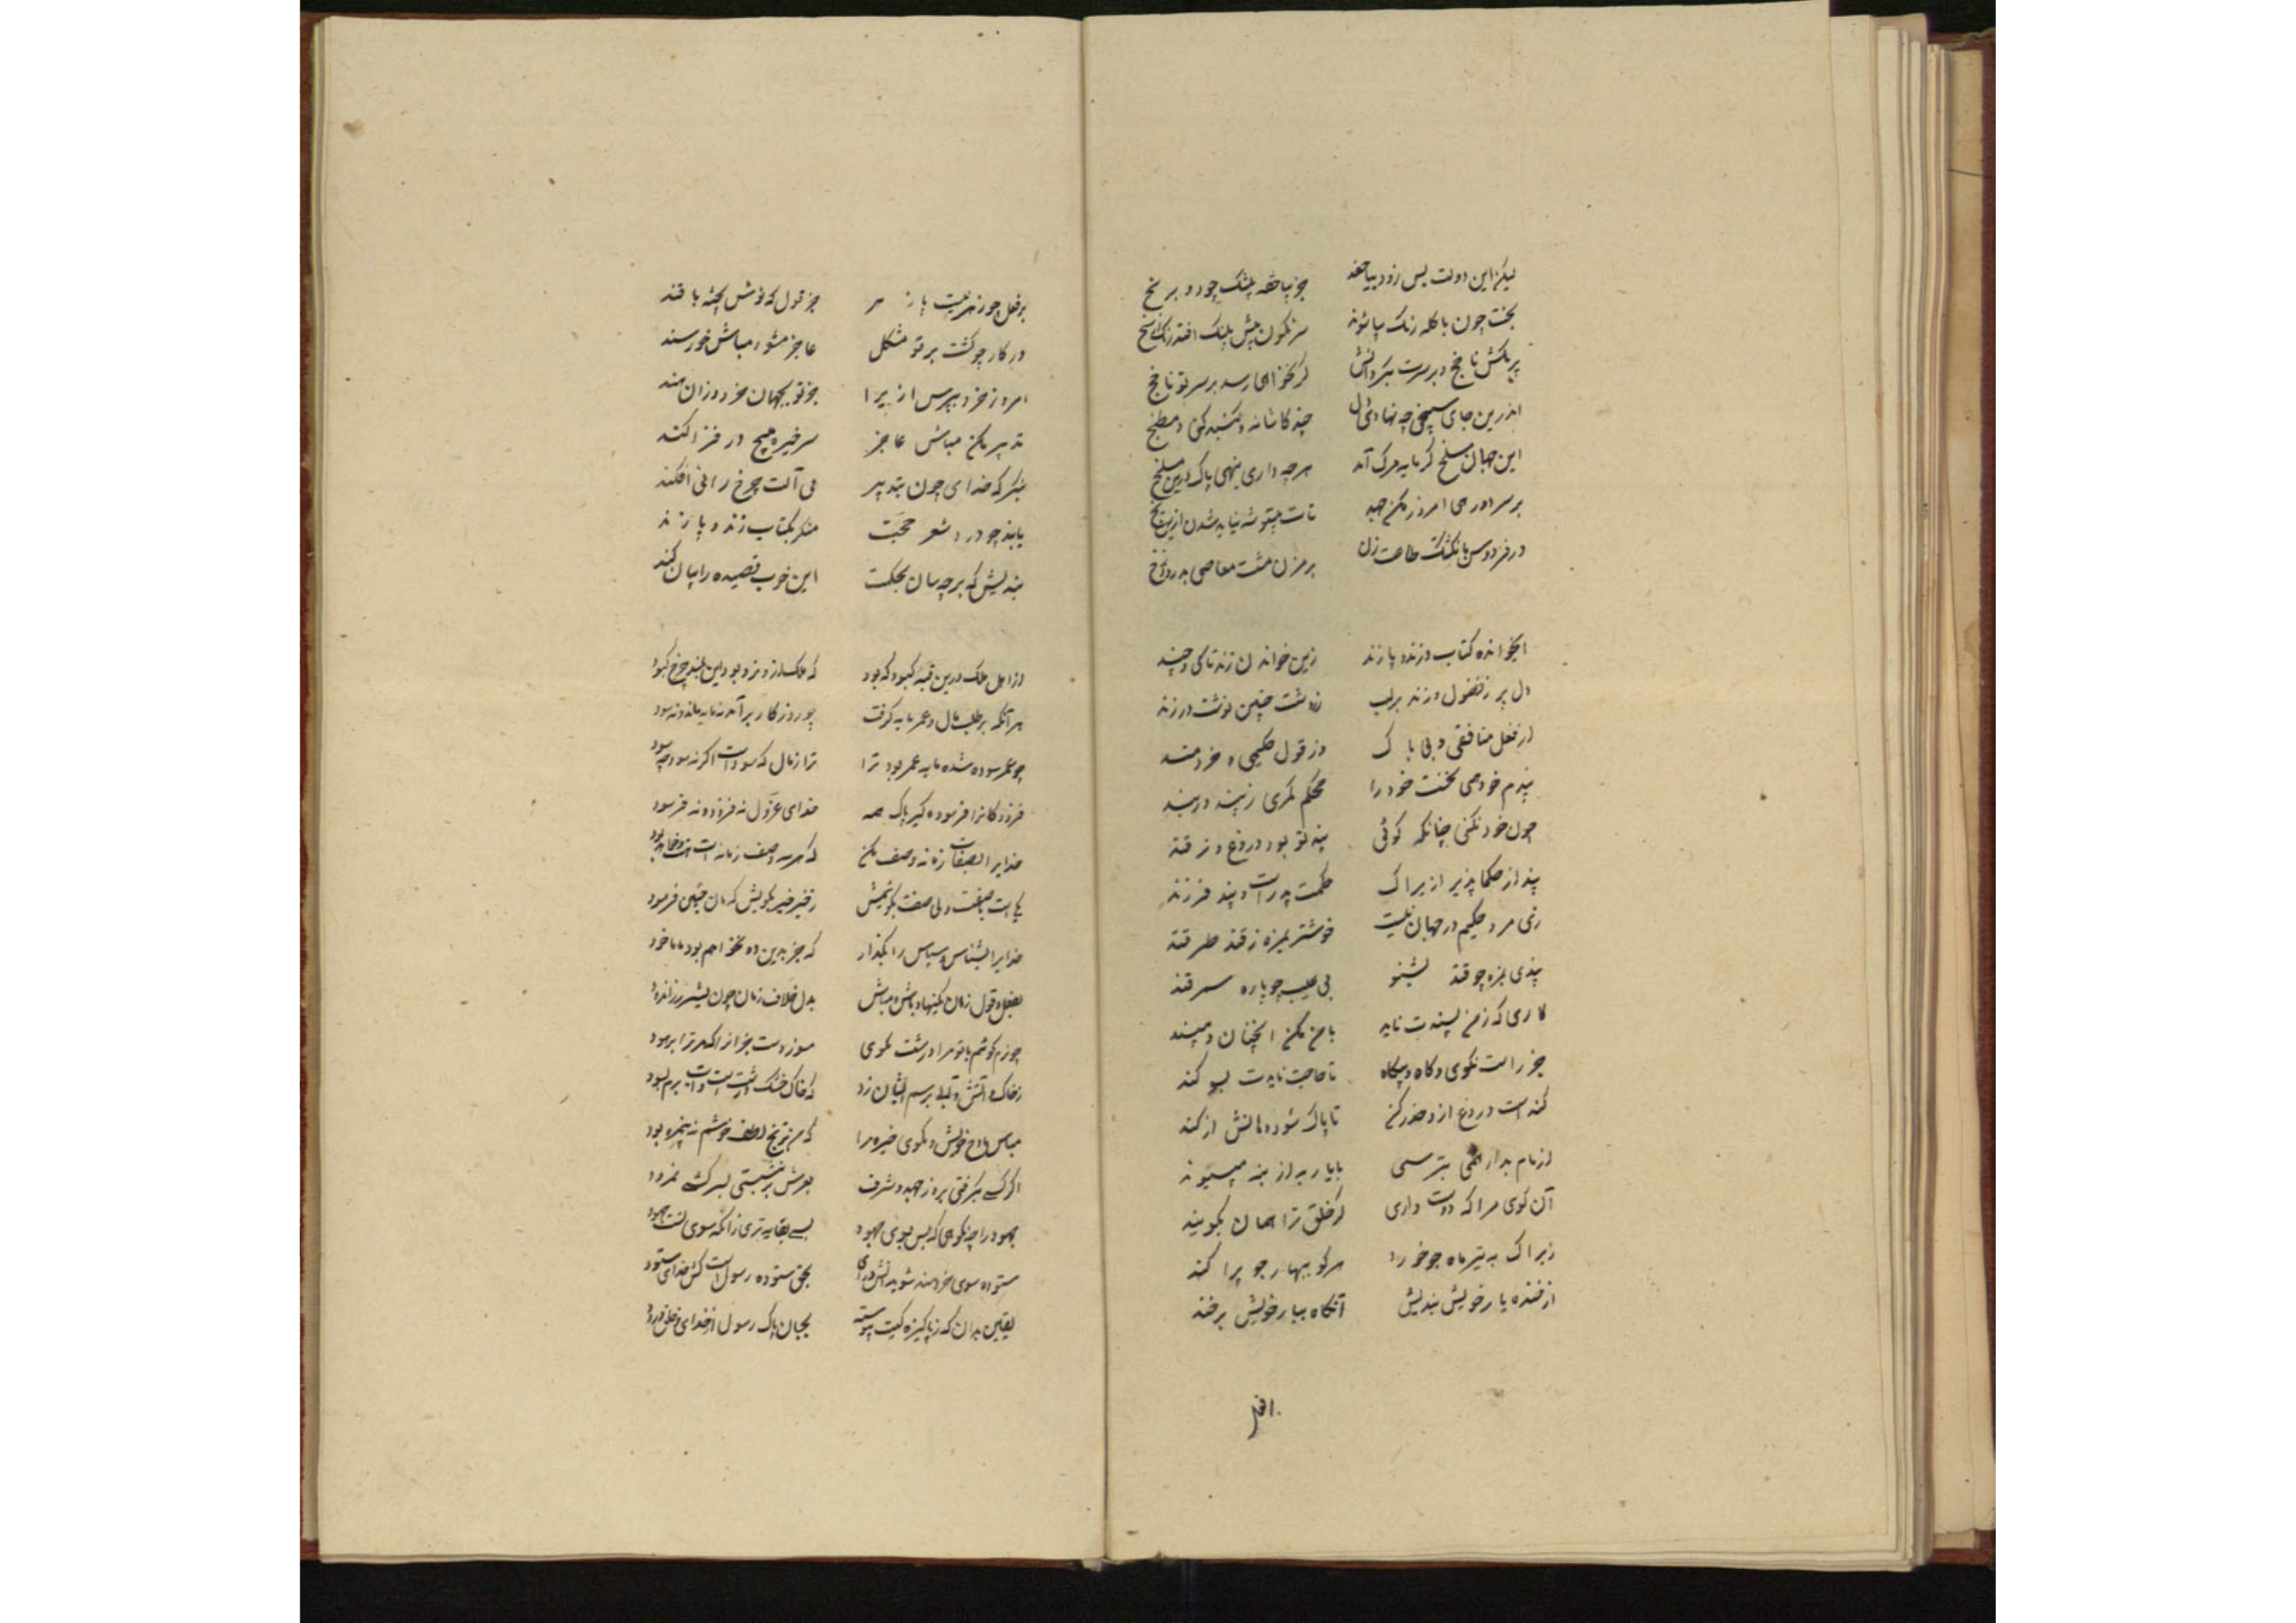 لیکن این دولت بس زود بپا جغد جز پاخته پلنک چو دو بر نخ
بخت چون با کله رنک بپا شوند سرنکون پیش پلنک افتد رنک از شخ
پر بکش ناجخ و بر سرت بکردانش کر نخواهی رسد بر سر تو ناجخ
اندرین جای سپنجی چه نهادی دل چند کاشانه و کنبد کنی و مطبخ
این جهان مسلخ کرمابه مرک آمد هر چه داری بنهی پاک درین مسلخ
بر سر اوردهی امروز بکن جهد تات بیتوشه نباید شدن ازین
در فردوس بانکشتک طاعت زن بر مزن مشت معاصی بدر دوزخ
ایخوانده کتاب و زند و پازند زین خواندن زند تا کی و چند
دل پر ز فضول و زند بر لب زردشت چنین نوشت در زند
از فعل منافقی و بی باک وز قول حکیمی و خردمند
پندم چو دهی نخست خود را محکم کمری ز پند در بند
چون خود نکنی چنانکه کوئی پند تو بود دروغ و ترفند
پند از حکما پذیر ازیراک حکمت پدرست و پند فرزند
زی مرد حکیم در جهان نیست خوشتر بمزه ز قند طرقند
پندی بمزه چو قند بشنو بی عیب چو پاره سمرقند
کاری که ز من پسندت ناید با من مکن انچنان و مپسند
جز راست مکوی کاه و بیکاه تا حاجت نایدت بسوکند
کنده است دروغ ازو حذر کن تا پاک شود دهانش از کند
از نام بد ار همی بترسی با یار بد از بنه مپیوند
آن کوی مرا که دوست داری کر خلق ترا همان بکویند
زیراک به تیر ماه جو خورد هر کو ببهار جو پراکند
از خنده یار خویش بندیش آنکاه بیار خویش برخند
بر فعل چو زهر نیست پازهر جز قول که نوش کشته با قند
در کار چو کشت بر تو مشکل عاجز مشو و مباش خورسند
امروز خرد بپرس ازیرا جز تو بجهان خردوران هند
تدبیر بکن مباش عاجز سر خیره مپیچ در قزاکند
بنکر که خدای چون بتدبیر بی آلت چرخ را پی افکند
یابند چو در شعر حجت منکر بکتاب زند و پازند
بندیش که بر چه سان بحکمت این خوب قصیده را پیان کند
از اهل ملک درین قبه کبود که بود که ملک ازو نربود این بلند چرخ کبود
هر آنکه بر طلب مال و عمر مایه کرفت چو روزکار بر آمد نه مایه ماند و نه سود
چو عمر سوده شد و مایه عمر بود ترا ترا زمال که سودست اکر نه سود چه سود
فزودکانرا فرسوده کیر پاک همه خدای عزوجل نه فزود و نه فرسود
خدایرا بصفات زمانه وصف مکن که هر سه وصف زمانه است هست و باشد و بود
یکی است با صفت و بی صفت نکوئیمش
خدایرا بشناس و سپاس را بکذار که جز بدین دو نخواهیم بود ما ماخوذ
بفعل و قول زبان یکنهاد باش و مباش بدل خلاف زبان چون پشیز زراندود
چو نرم کویم با تو مرا درشت مکوی مسوز دست جز آنرا که مر ترا بر هود
ز خاک و آتش و آب
مباش مادح خویش و مکوی خیره مرا که من ترنج لطیف خوشم نه بیمزه بود
اکر کسی بکرفتی بزور و جهد شرف بعرش بر بنشستی بسرکشی نمرود
جهود را چه نکوهی که بس بوی جهود
ستوده سوی خردمند شو بدانش و رای بحق ستوده رسول است کش خدای ستود
یقین بدان که ز پاکیزه کیست پیوسته بجان پاک رسول از خدای و خلق درود
افر